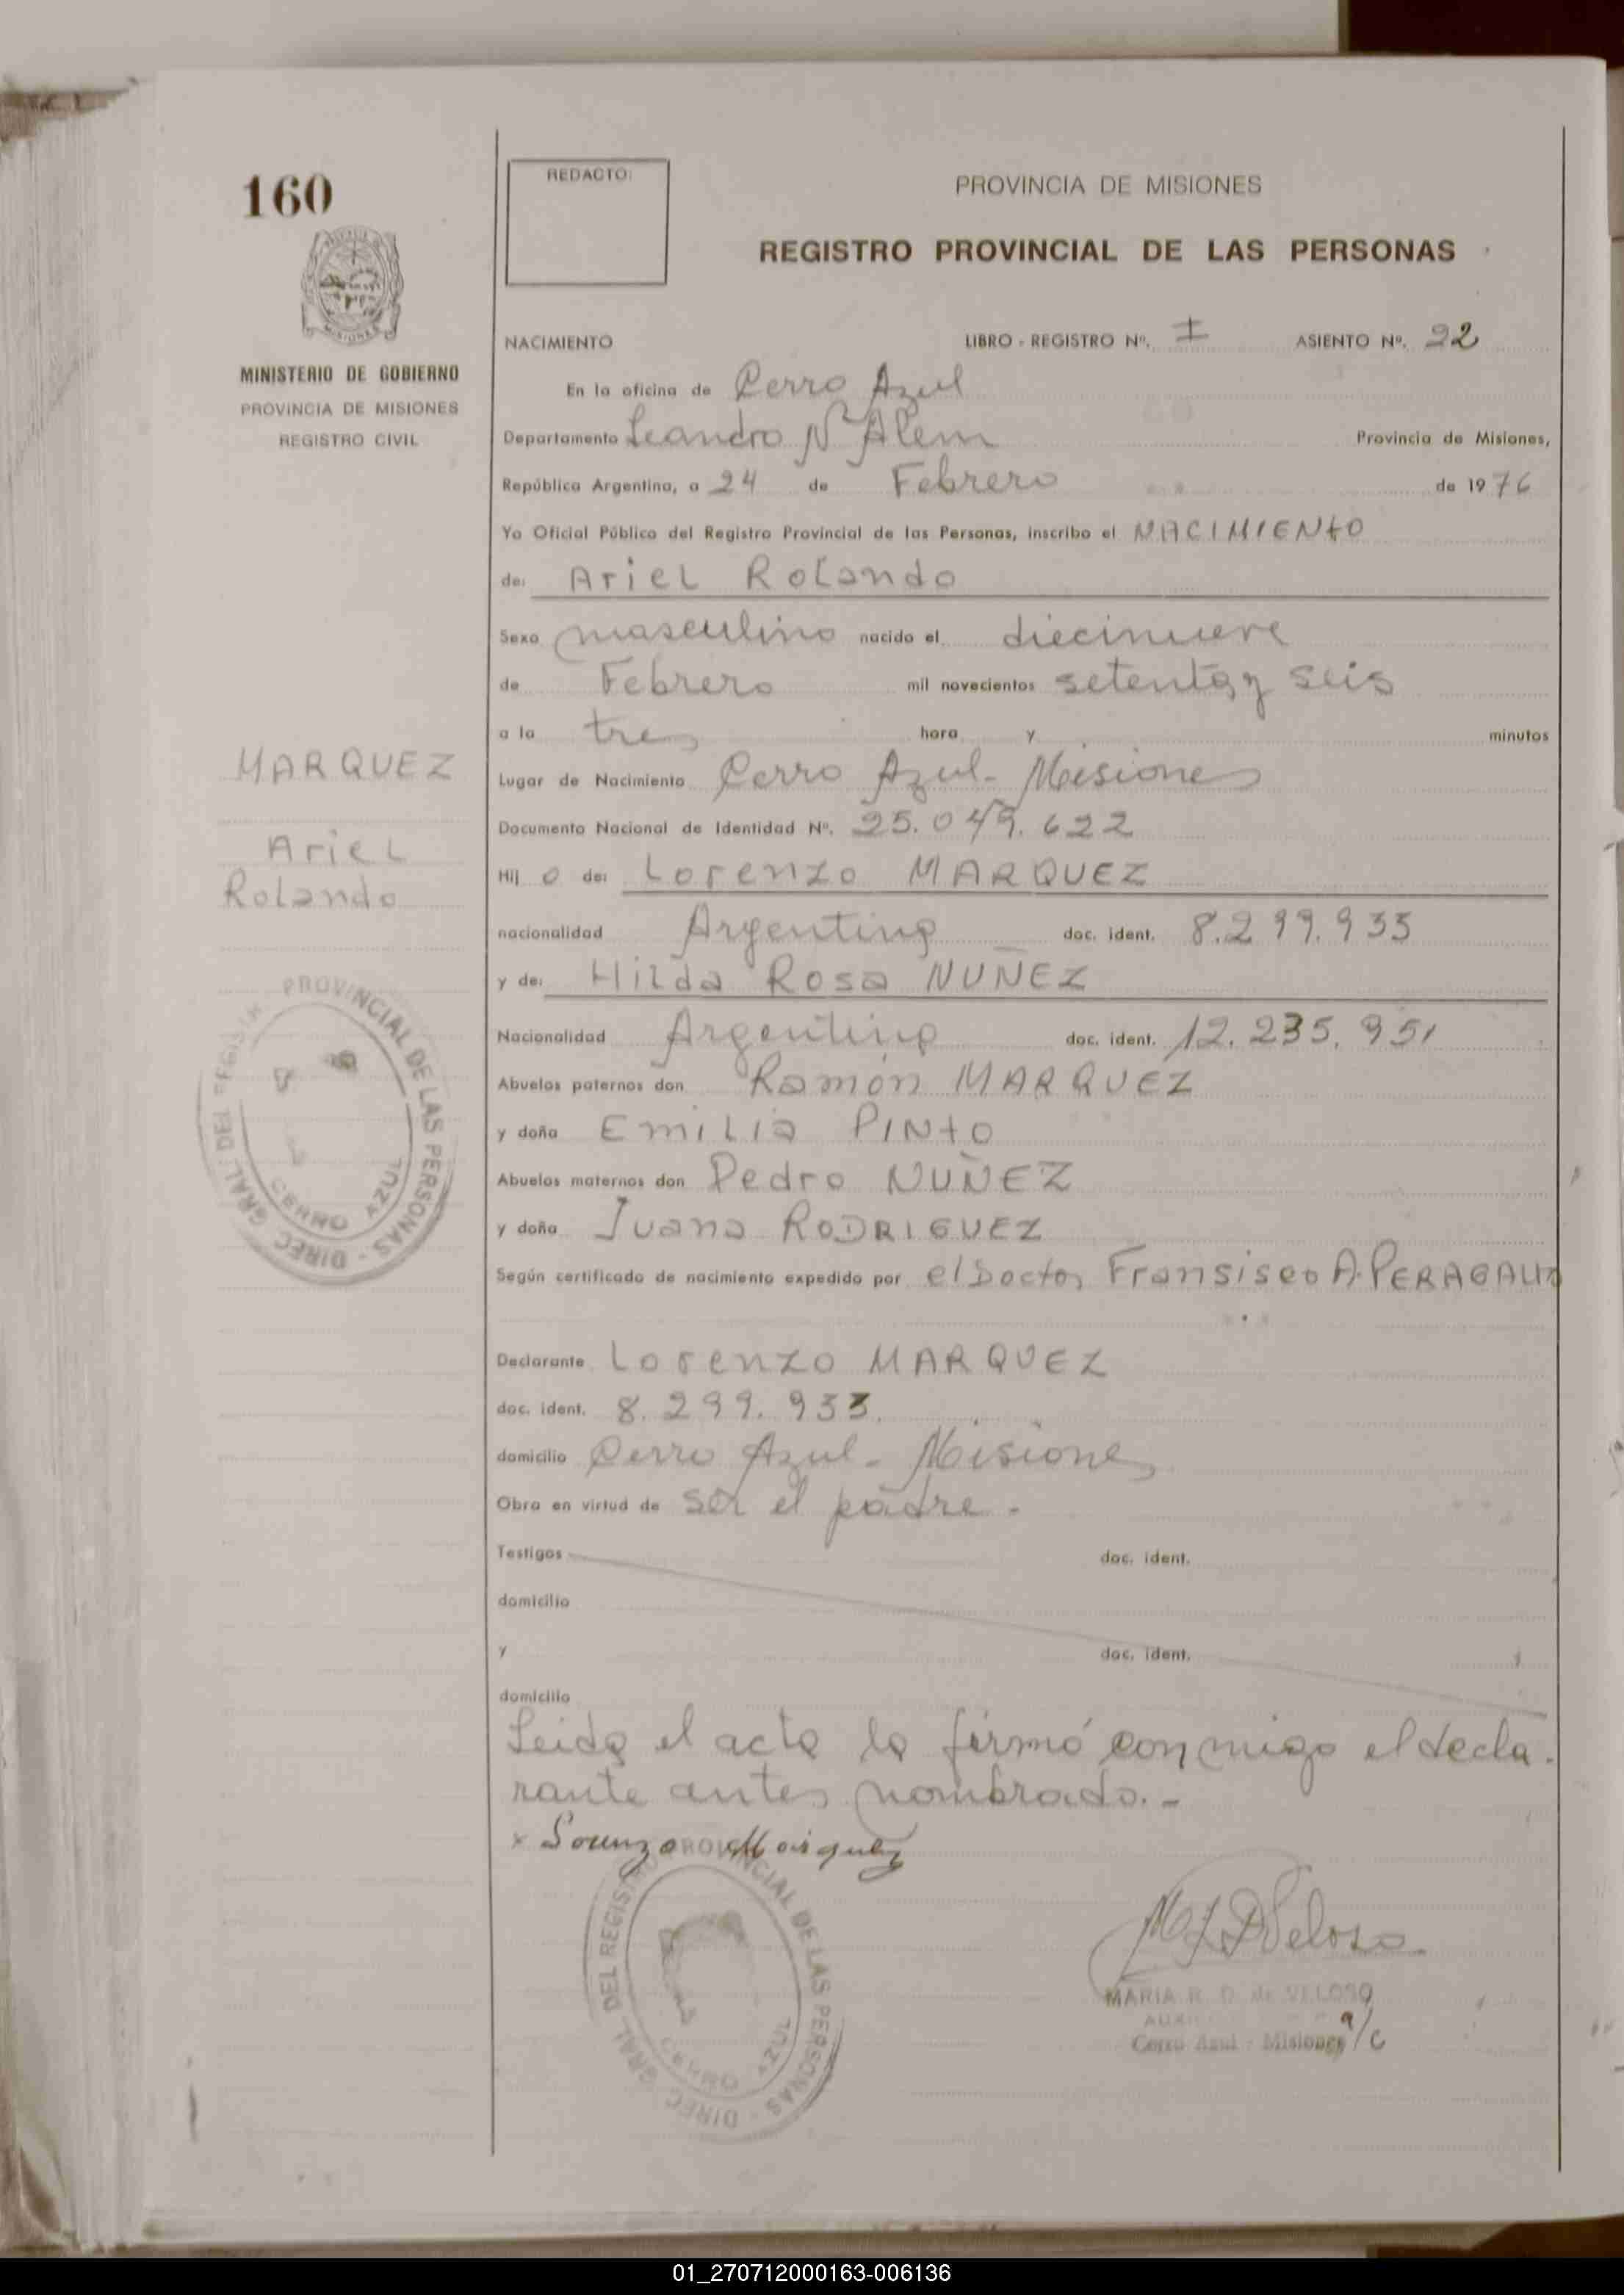 160
REDACTO:
PROVINCIA DE MISIONES
REGISTRO PROVINCIAL DE LAS PERSONAS
MINISTERIO DE GOBIERNO
PROVINCIA DE MISIONES
REGISTRO CIVIL
NACIMIENTO LIBRO - REGISTRO Nº. I ASIENTO Nº. 22
En la oficina de Cerro Azul
Departamento Leandro N Alem Provincia de Misiones,
República Argentina, a 24 de Febrero de 1976
Yo Oficial Público del Registro Provincial de las Personas, inscribo el NACIMIENtO
de: Ariel Rolando
Sexo masculino nacido el diecinueve
de Febrero mil novecientos setenta y seis
a la tres hora y minutos
MARQUEZ
Ariel
Rolando
Lugar de Nacimiento Cerro Azul - Misiones
Documento Nacional de Identidad Nº. 25.049.622
Hij o de: Lorenzo MARQUEZ
nacionalidad Argentina doc. ident. 8.299.933
y de: Hilda Rosa NUÑEZ
Nacionalidad Argentina doc. ident. 12.235.951
Abuelos paternos don Ramón MARQUEZ
y doña Emilia PINtO
Abuelos maternos don Pedro NUÑEZ
y doña Juana RODRIGUEZ
Según certificado de nacimiento expedido por el Doctor Fransisco A.
Declarante Lorenzo MARQUEZ
doc. ident. 8.299.933.
domicilio Cerro Azul - Misiones
Obra en virtud de ser el padre -
Testigos doc. ident.
domicilio
y doc. ident.
domicilio
Leida el acta la firmó conmigo el decla-
rante antes nombrado. -
x Lorenzo Marquez
DIREC. GRAL. DEL REGISTRO PROVINCIAL DE LAS PERSONAS
CERRO AZUL
DIREC. GRAL. DEL REGISTRO PROVINCIAL DE LAS PERSONAS
CERRO AZUL
MARIA R. D. de VELOSO
a/c
Cerro Azul - Misiones
01_270712000163-006136